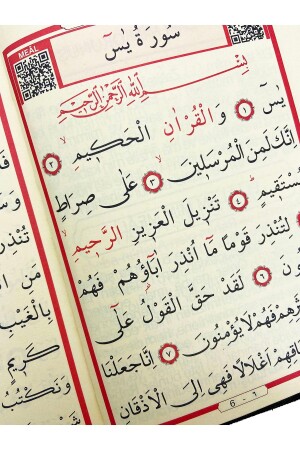 MEÂL
سُورَةُ يٰسٓ
بِسْمِ اللّٰهِ الرَّحْمٰنِ الرَّحِيمِ
يٰسٓ ﴿١﴾ وَالْقُرْاٰنِ الْحَكِيمِ ﴿٢﴾
اِنَّكَ لَمِنَ الْمُرْسَلِينَ ﴿٣﴾ عَلٰى صِرَاطٍ
مُسْتَقِيمٍ ﴿٤﴾ تَنْزِيلَ الْعَزِيزِ الرَّحِيمِ
لِتُنْذِرَ قَوْمًا مَٓا اُنْذِرَ اٰبَٓاؤُ۬هُمْ فَهُمْ
لَقَدْ حَقَّ الْقَوْلُ عَلٰٓى
فَهُمْ لَا يُؤْمِنُونَ ﴿٧﴾ اِنَّا جَعَلْنَا
اَغْلَالًا فَهِيَ اِلَى الْاَذْقَانِ
6 - ٦
مَنِ
بِالْغَيْبِ
كَرِيمٍ
وَنَكْتُبُ